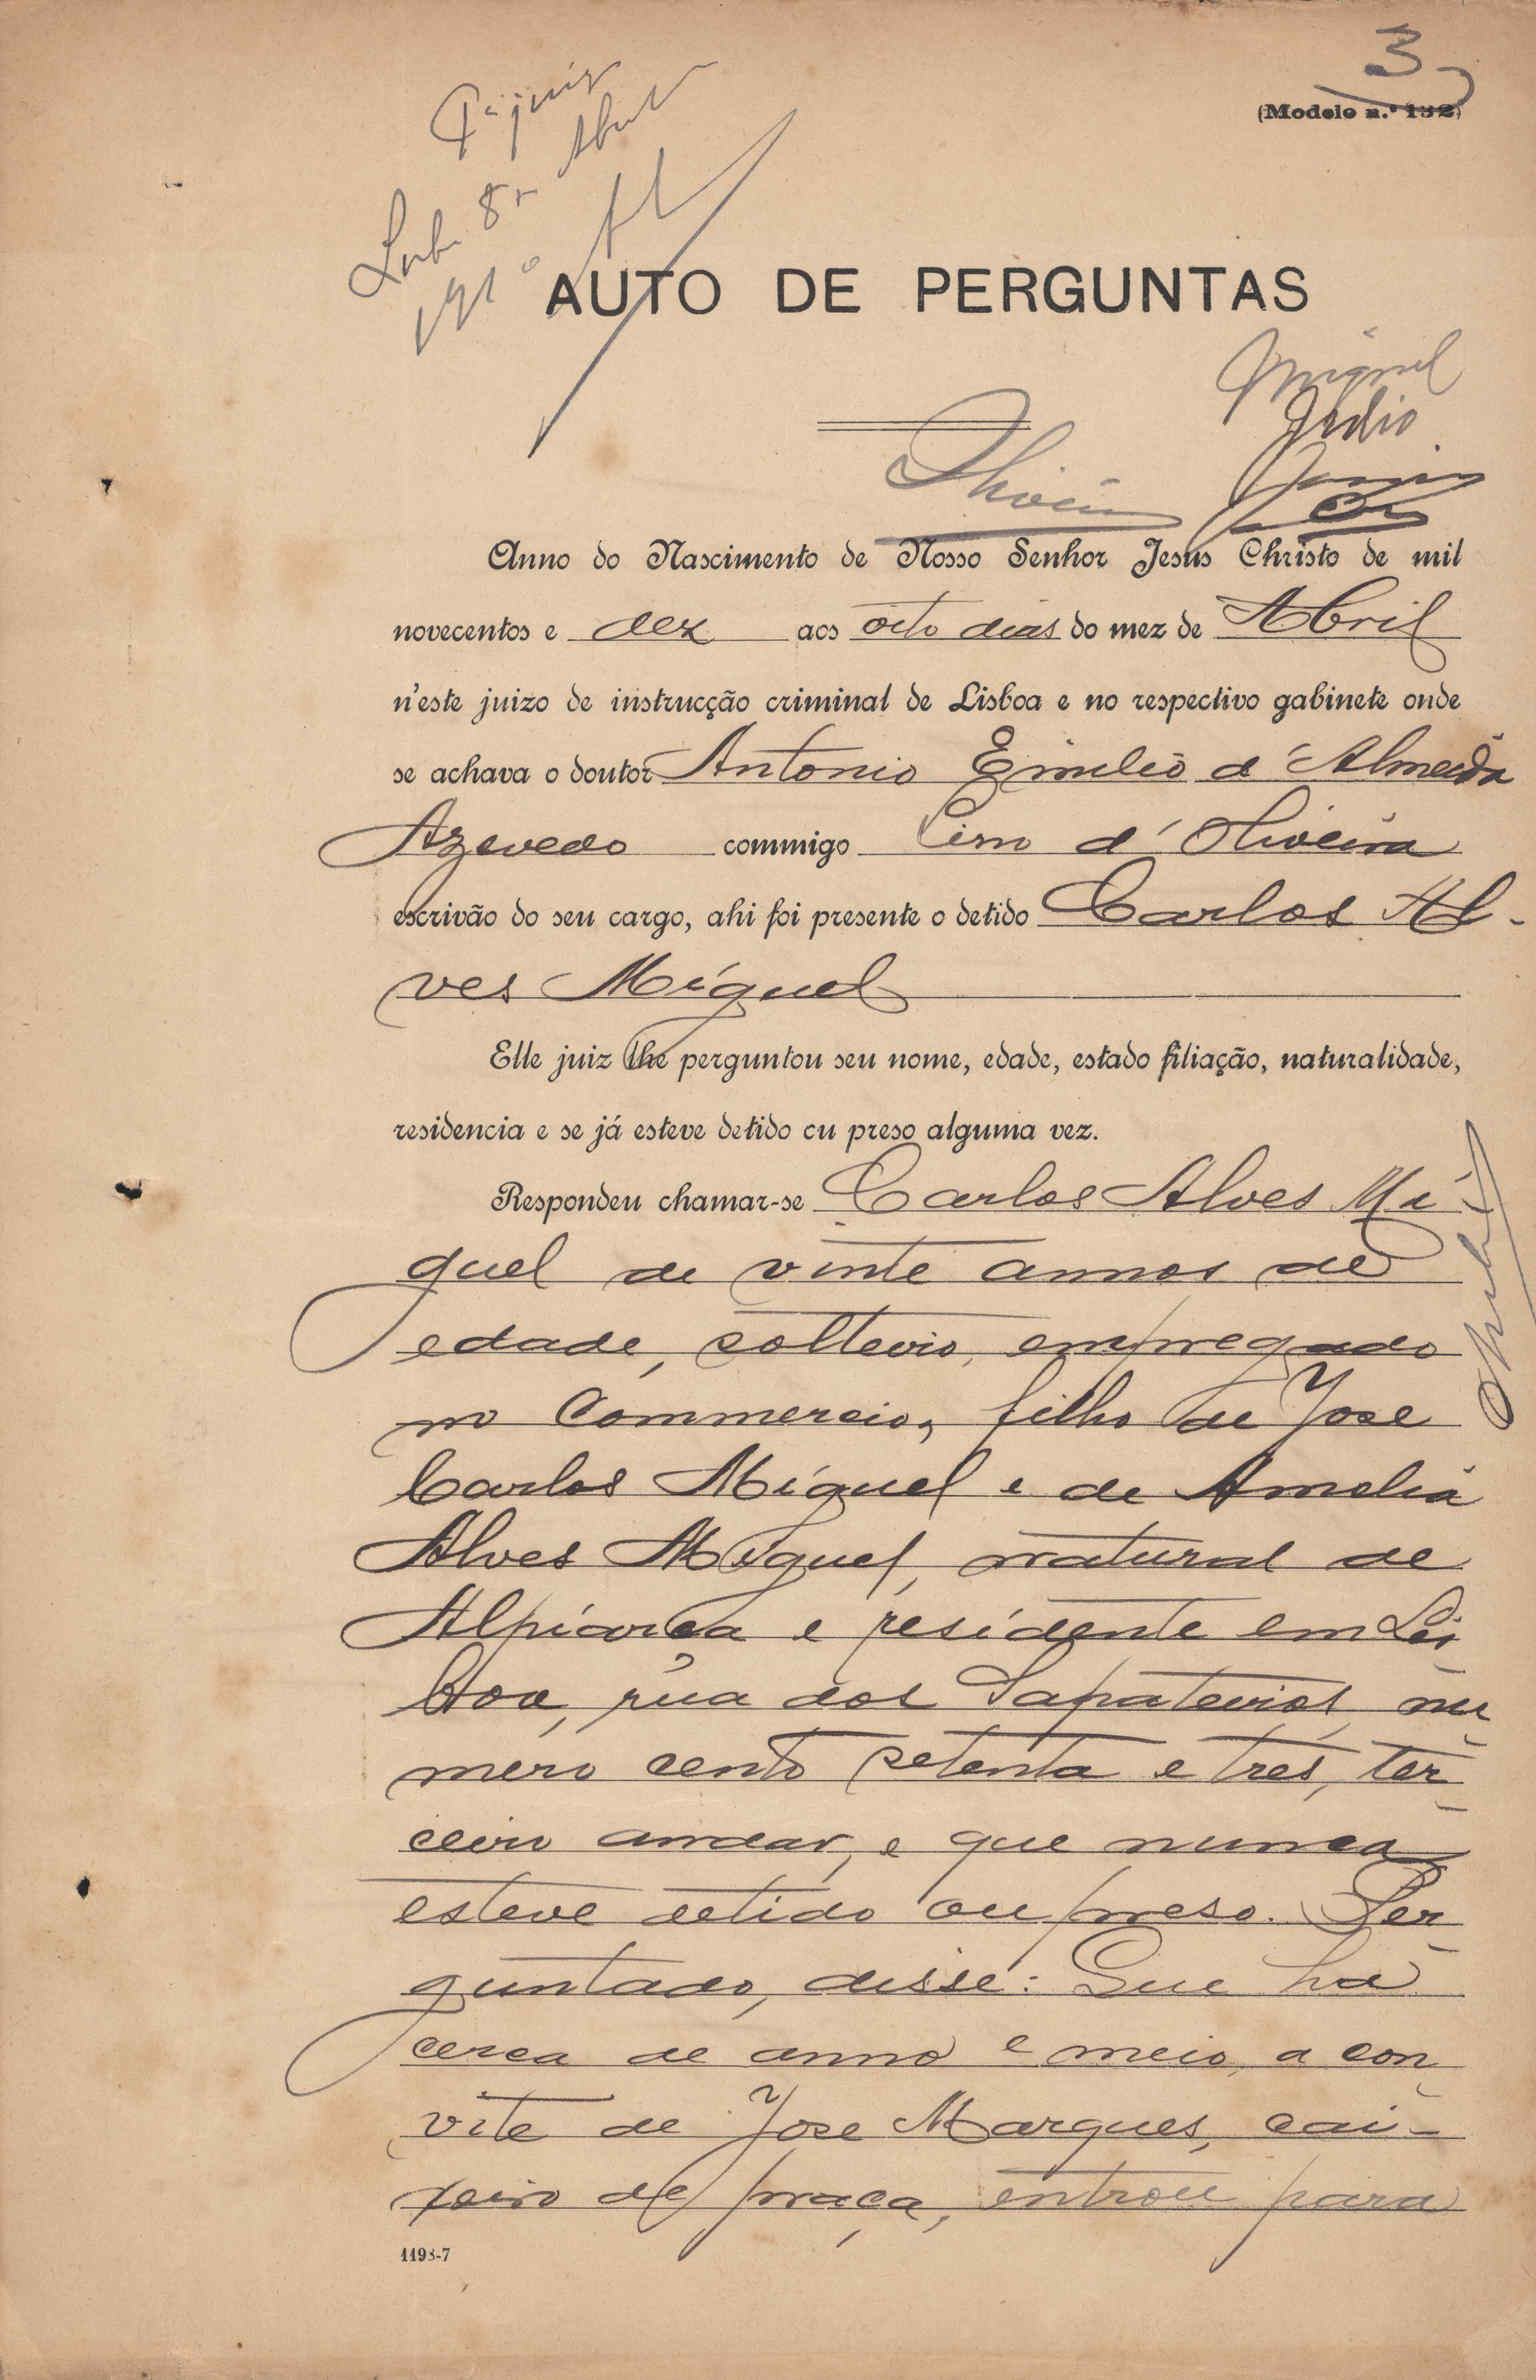 3
(Modelo n.º 132)
AUTO DE PERGUNTAS
Miguel
Anno do Nascimento de Nosso Senhor Jesus Christo de mil
novecentos e dez aos oito dias do mez de Abril
n'este juizo de instrucção criminal de Lisboa e no respectivo gabinete onde
se achava o doutor Antonio Emilio d'Almeida
Azevedo commigo Cirno d'Oliveira
escrivão do seu cargo, ahi foi presente o detido Carlos Al-
ves Miguel
Elle juiz lhe perguntou seu nome, edade, estado filiação, naturalidade,
residencia e se já esteve detido cu preso alguma vez.
Respondeu chamar-se Carlos Alves Mi
guel de vinte annos de
edade, solteiro, empregado
no Commercio, filho de Jose
Carlos Miguel e de Amelia
Alves Miguel, natural de
Alpiarça e residente em Lis
boa, rua dos Sapateiros, nu
mero cento setenta e tres, ter
ceiro andar, e que nunca
esteve detido ou preso. Per
guntado, disse: Que há
cerca de anno e meio, a con
vite de Jose Marques, cai-
xeiro de praça, entrou para
1193-7